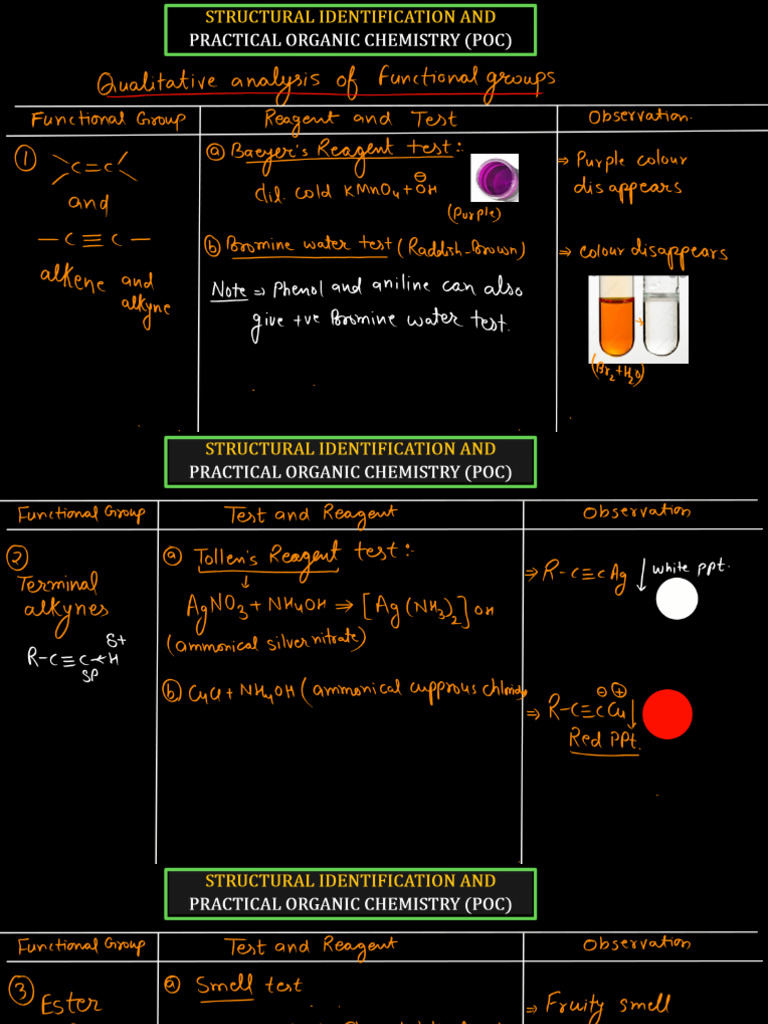 STRUCTURAL IDENTIFICATION AND
PRACTICAL ORGANIC CHEMISTRY (POC)
Qualitative analysis of Functional groups
Functional Group
Reagent and Test
Observation.
① >C=C<
and
—C≡C—
alkene and
alkyne
ⓐ Baeyer's Reagent test:
dil. cold KMnO₄ + ⊖OH
(Purple)
⇒ Purple colour
disappears
ⓑ Bromine water test (Raddish-Brown)
⇒ colour disappears
Note ⇒ Phenol and aniline can also
give +ve Bromine water test.
(Br₂+H₂O)
STRUCTURAL IDENTIFICATION AND
PRACTICAL ORGANIC CHEMISTRY (POC)
Functional Group
Test and Reagent
Observation
②
Terminal
alkynes
δ+
R-C≡C-H
sp
ⓐ Tollen's Reagent test:-
↓
AgNO₃ + NH₄OH ⇒ [Ag(NH₃)₂]OH
(ammonical silver nitrate)
⇒ R-C≡CAg ↓ white ppt.
ⓑ CuCl + NH₄OH (ammonical cupprous chloride
⇒ R-C≡C⊖Cu⊕↓
Red PPt.
STRUCTURAL IDENTIFICATION AND
PRACTICAL ORGANIC CHEMISTRY (POC)
Functional Group
Test and Reagent
Observation
③ Ester
ⓐ Smell test
⇒ Fruity smell